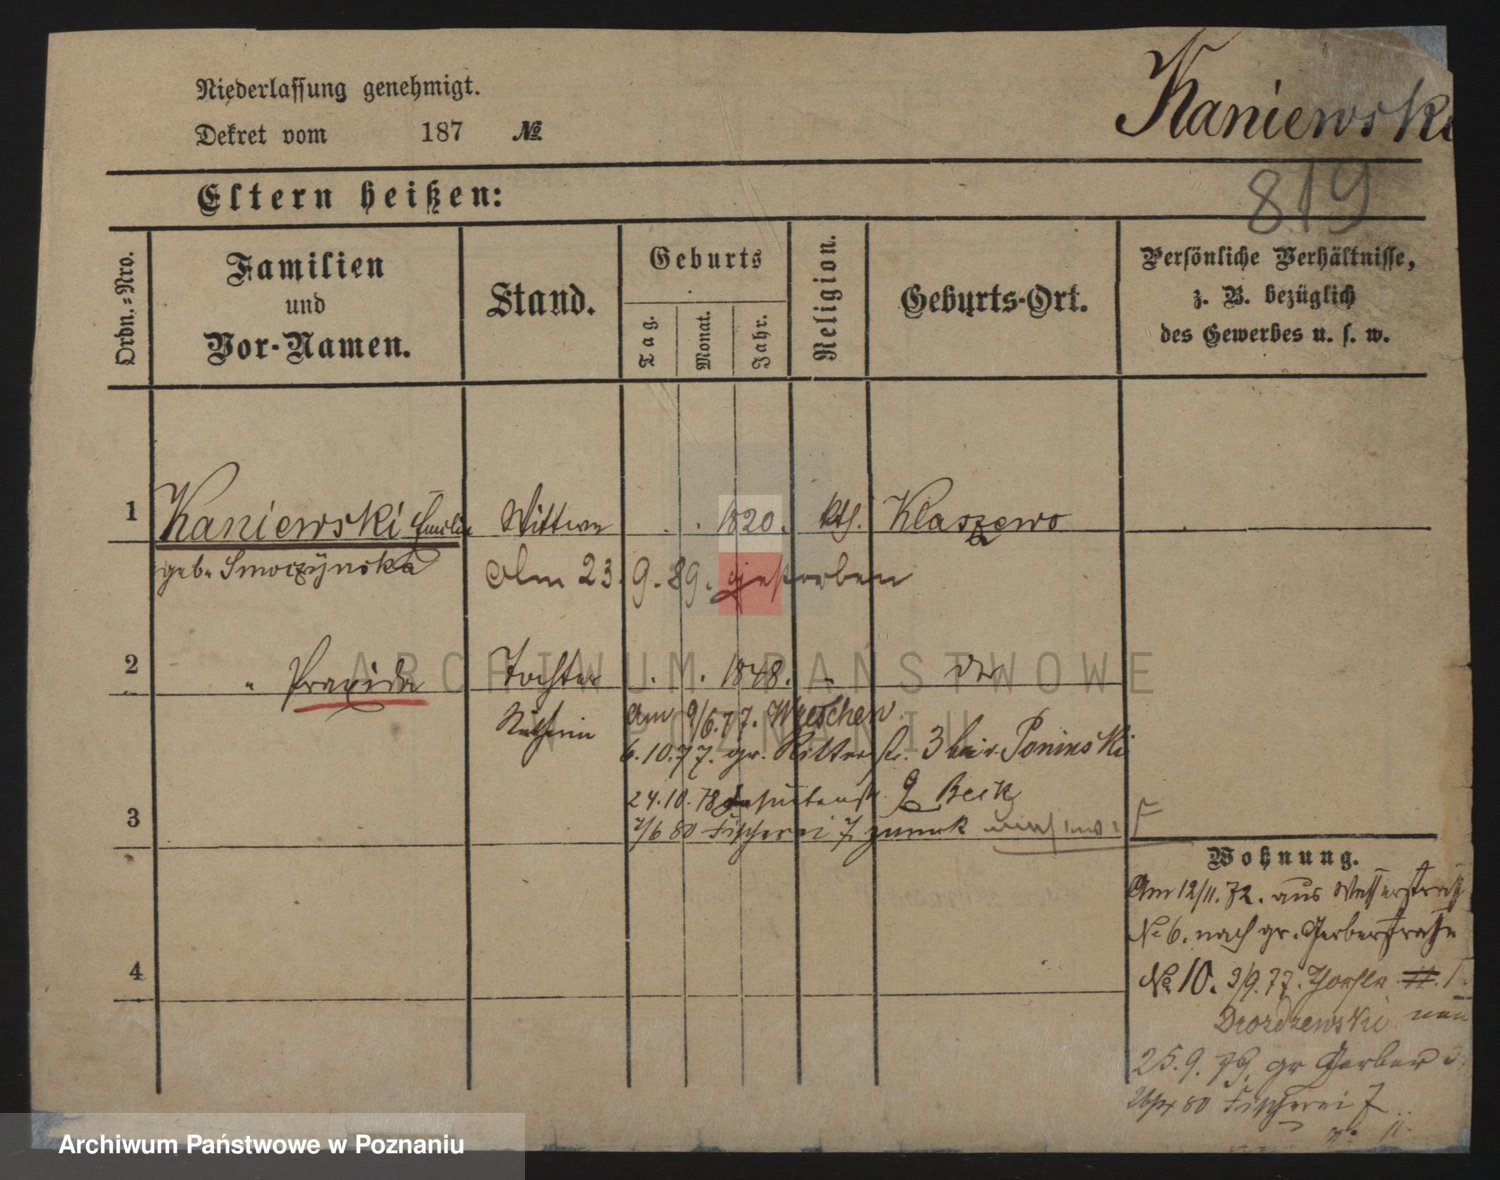 Niederlassung genehmigt.
Dekret vom 187 №
Kaniewski
819
Eltern heißen:
Ordn.=Nro.
Familien
und
Vor-Namen.
Stand.
Geburts
Tag.
Monat.
Jahr.
Religion.
Geburts-Ort.
Persönliche Verhältnisse,
z. B. bezüglich
des Gewerbes u. s. w.
1 Kaniewski Emilie Wittwe 1820. kth. Klaszewo
geb. Smoczynska Am 23. 9. 89. gestorben
2 " Praxida Tochter 1848. "
Am 9/6.77. Wreschen
6.10.77. gr. Ritterstr. 3 bei v. Poninski
24.10.78 Jesuitenstr. 9 Beck
3 7/6 80 Fischerei 7 zurück
Wohnung.
Am 12/11. 72. aus Wasserstraße
№ 6. nach gr. Gerberstraße
4 № 10. 3/9.77.
Drozdzewski
25.9.79. gr Gerber
80 Fischerei 7
ARCHIWUM PAŃSTWOWE
W POZNANIU
Archiwum Państwowe w Poznaniu